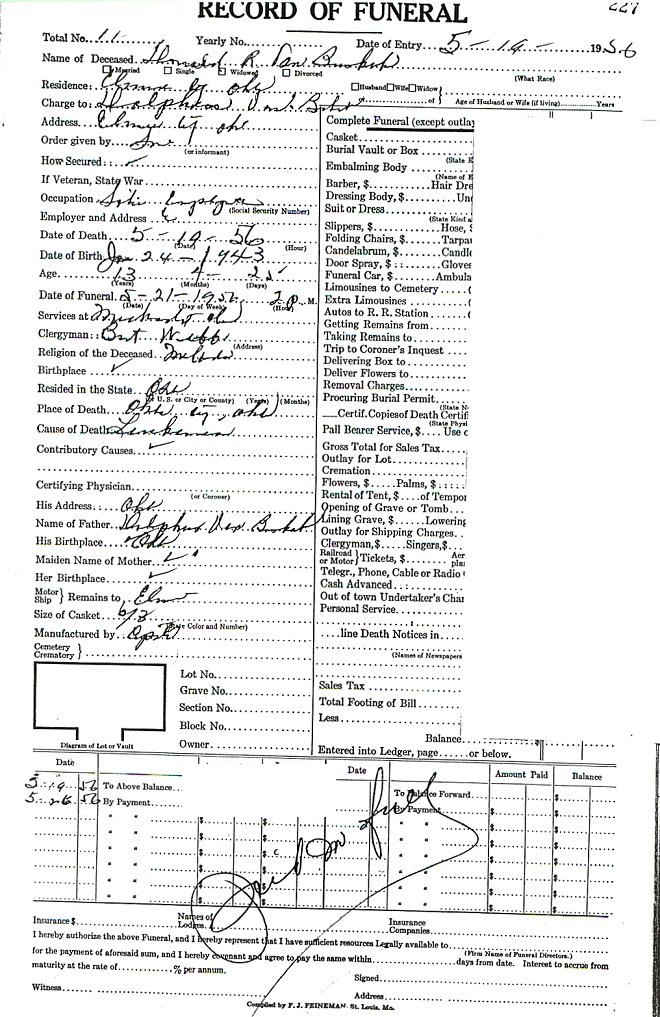 RECORD OF FUNERAL
227
Total No. 11 Yearly No. Date of Entry 5-19- 1956
Name of Deceased R. Van Buskirk
Married Single Widowed Divorced (What Race)
Residence: Elmore City Okla Husband Wife Widow
Charge to: Van Buskirk of Age of Husband or Wife (if living) Years
Address Elmore City Okla
Order given by
(or informant)
How Secured: ✓
If Veteran, State War
Occupation
(Social Security Number)
Employer and Address
Date of Death 5-19-56
(Date) (Hour)
Date of Birth Jan 24-1943
Age 13 4 25
(Years) (Months) (Days)
Date of Funeral 5-21-1956 2 P. M.
(Date) (Day of Week) (Hour)
Services at
(Address)
Clergyman: Bert Webb
Religion of the Deceased
Birthplace ✓
Resided in the State Okla
(U. S. or City or County) (Yrs) (Months)
Place of Death Okla City, Okla
Cause of Death Leukemia
Contributory Causes ✓
Certifying Physician
(or Coroner)
His Address: Okla
Name of Father Van Buskirk
His Birthplace Okla
Maiden Name of Mother ✓
Her Birthplace ✓
Motor Ship } Remains to Elmore
Size of Casket 6/3
(State Color and Number)
Manufactured by
Cemetery
Crematory }
Diagram of Lot or Vault
Lot No.
Grave No.
Section No.
Block No.
Owner
Complete Funeral (except outlay
Casket
Burial Vault or Box
(State K
Embalming Body
(Name of E
Barber, $ Hair Dre
Dressing Body, $ Und
Suit or Dress
(State Kind a
Slippers, $ Hose, $
Folding Chairs, $ Tarpau
Candelabrum, $ Candle
Door Spray, $ Glove
Funeral Car, $ Ambula
Limousines to Cemetery (
Extra Limousines (
Autos to R. R. Station (
Getting Remains from
Taking Remains to
Trip to Coroner's Inquest
Delivering Box to
Deliver Flowers to
Removal Charges
Procuring Burial Permit
(State N
Certif. Copies of Death Certif
(State Physi
Pall Bearer Service, $ Use c
Gross Total for Sales Tax
Outlay for Lot
Cremation
Flowers, $ Palms, $
Rental of Tent, $ of Tempor
Opening of Grave or Tomb
Lining Grave, $ Lowering
Outlay for Shipping Charges
Clergyman, $ Singers, $
Railroad or Motor } Tickets, $ Aer pla
Telegr., Phone, Cable or Radio (
Cash Advanced
Out of town Undertaker's Char
Personal Service
line Death Notices in
(Names of Newspapers
Sales Tax
Total Footing of Bill
Less
Balance
Entered into Ledger, page or below.
Date Date Amount Paid Balance
5-19-56 To Above Balance $ To Balance Forward $
5-26-56 By Payment By Payment $
" " $ $ " " $
" " $ $ " " $
" " $ $ " " $
" " $ $ " " $
" " $ $ " " $
" " $ $ " " $
Paid in full
Insurance $ Names of Lodges Insurance Companies
I hereby authorize the above Funeral, and I hereby represent that I have sufficient resources Legally available to
(Firm Name of Funeral Directors.)
for the payment of aforesaid sum, and I hereby covenant and agree to pay the same within days from date. Interest to accrue from
maturity at the rate of % per annum.
Signed
Witness Address
Compiled by F. J. FEINEMAN. St. Louis, Mo.